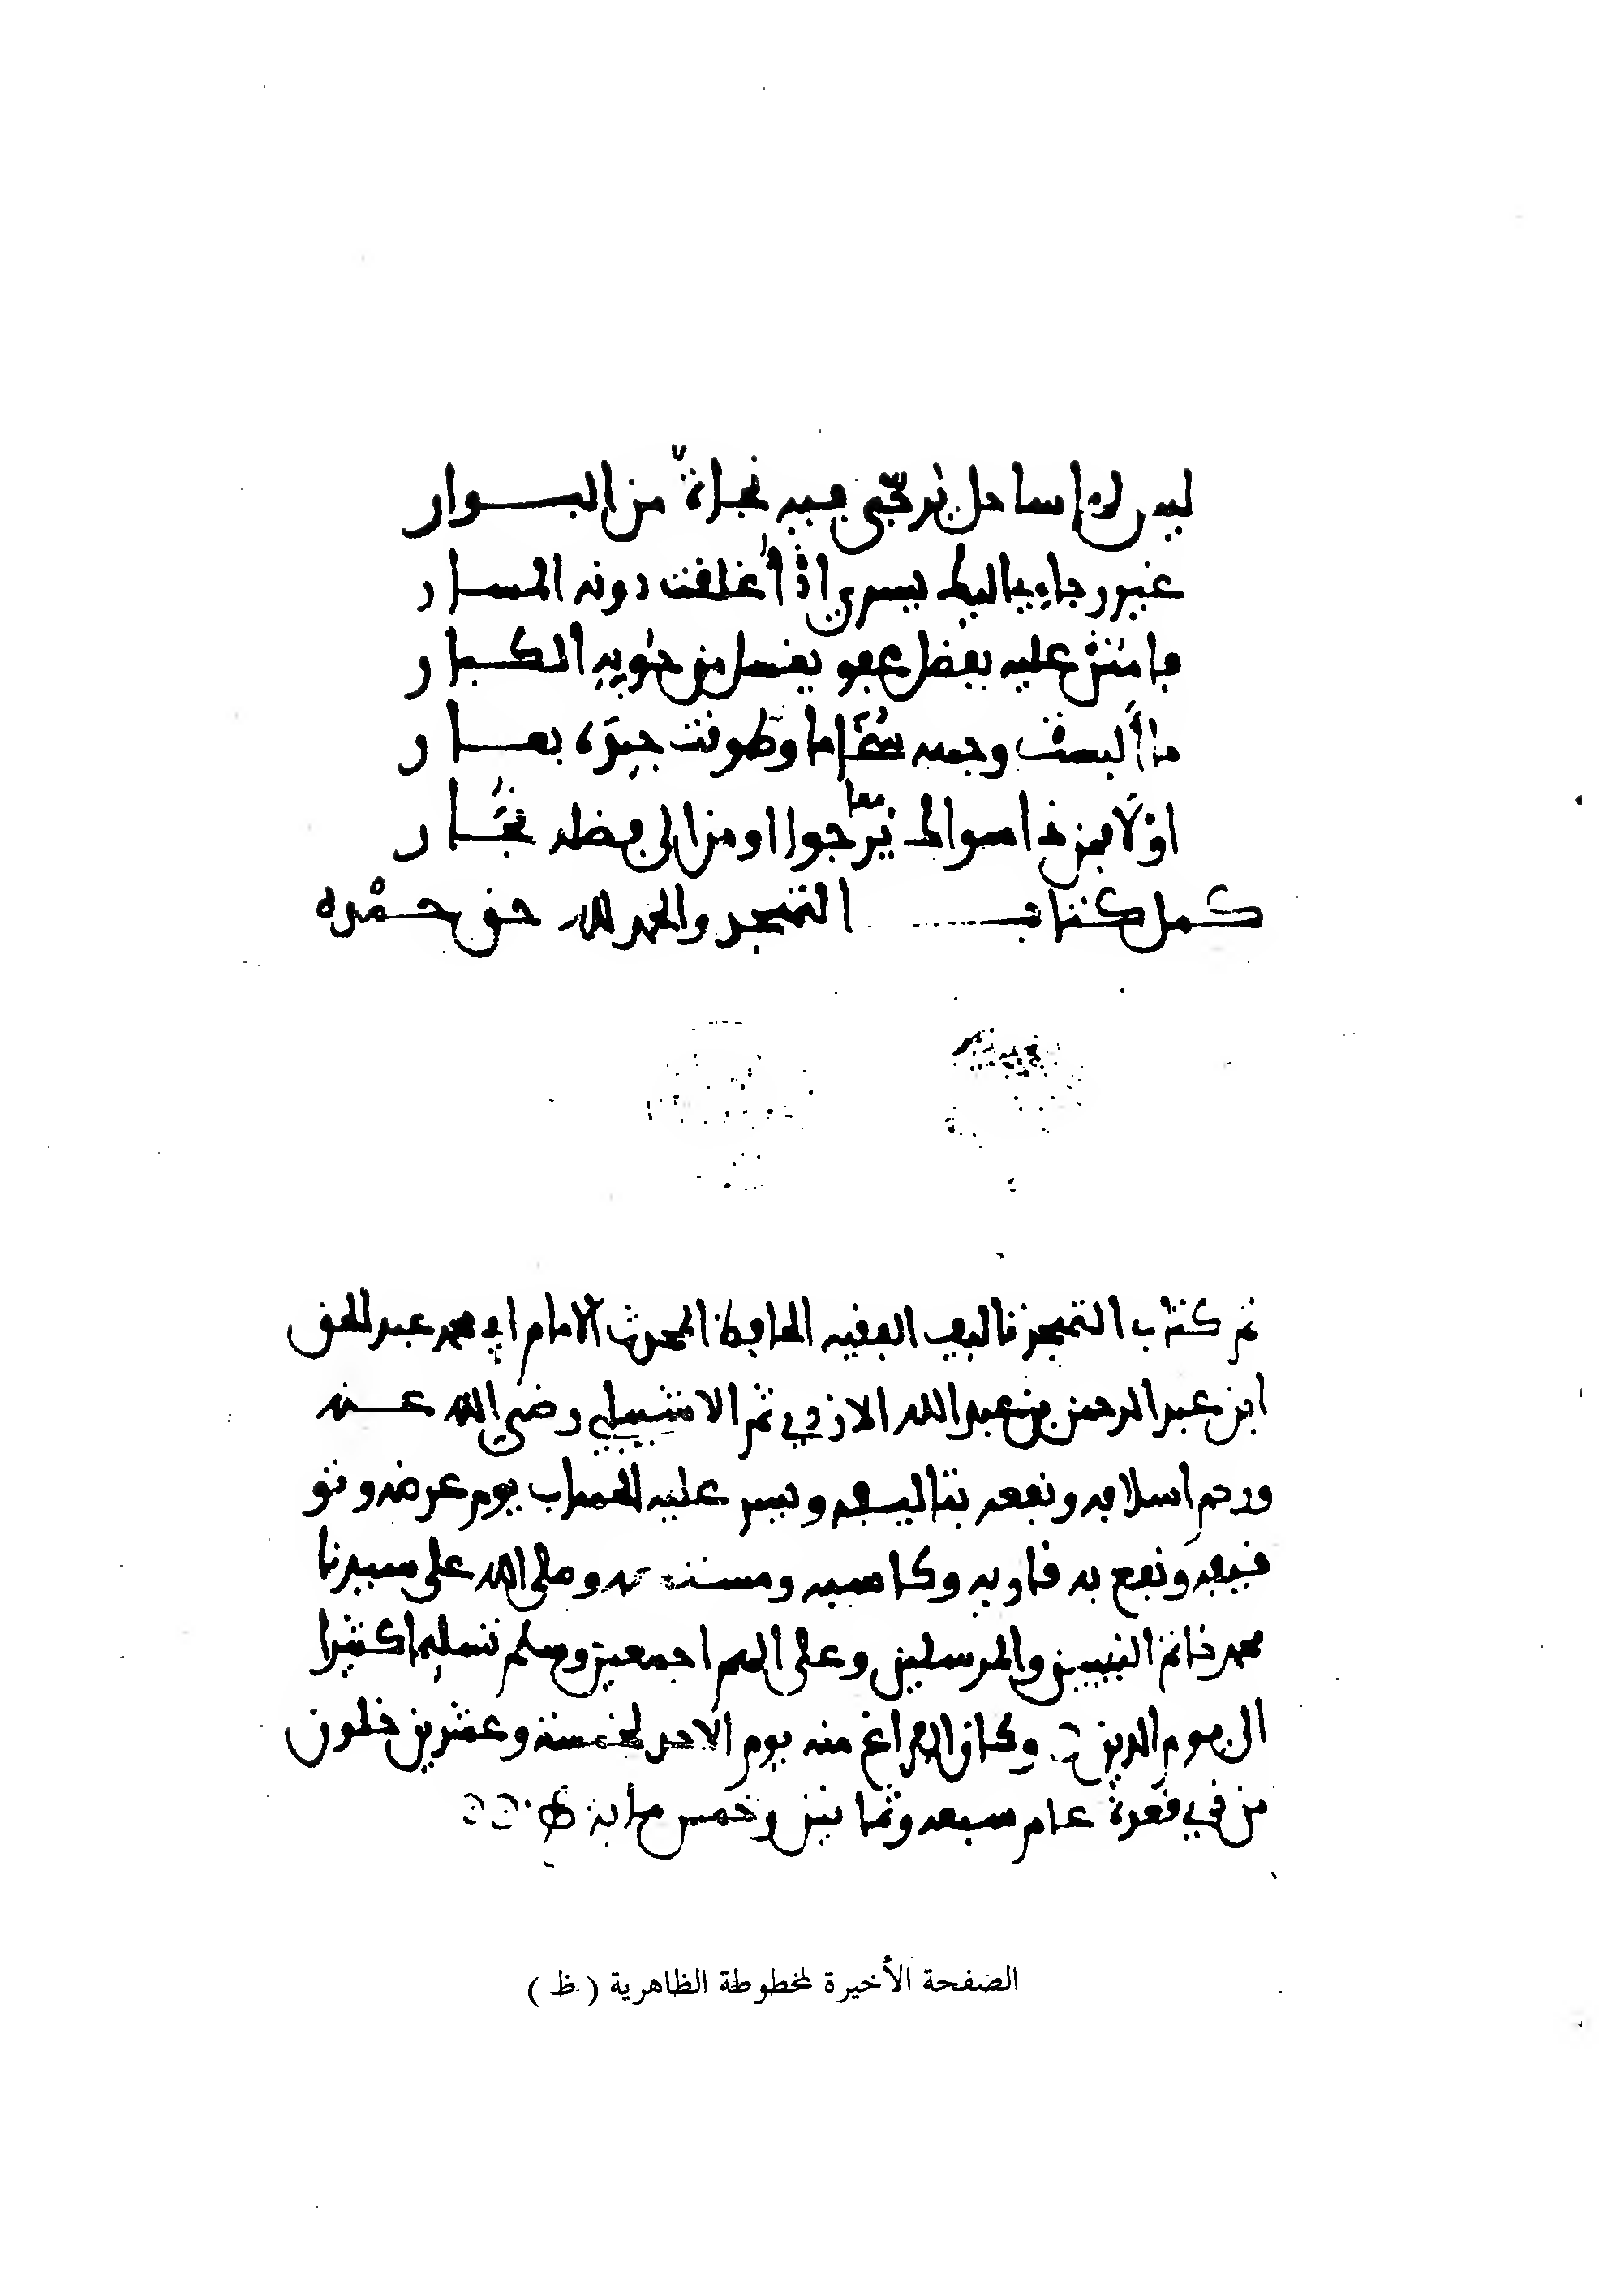 ليس له ساحل يُرجّى فيه نجاة من البـــوار
غير رجاء اليك يسري اذا أُغلقت دونه المســار
فامنن عليه بفضل عفو يغسل من حوبه الكبــار
ما أَلبست وجهه سُخَاما وطوقت جيده بعــار
اوْلا فمن ذا سواك يرجوا او من الى فضله يُجَــار
كمل كتاب التهجد والحمد لله حق حمْده
تم كتاب التهجد تاليف الفقيه الحافظ المحدث الامام ابي محمد عبد الحق
ابن عبد الرحمن بن عبد الله الازدي ثم الاشبيلي رضي الله عــنه
ورحم اسلافه ونفعه بتاليفه ويسر عليه الحساب يوم عرضه وتو
فيقه ونفع به قاريه وكاسبه وصلى الله على سيدنا
محمد خاتم النبيين والمرسلين وعلى الهم اجمعين وسلم تسليما كثيرا
الى يوم الدين وكان الفراغ منه يوم الاحد لخمسة وعشرين خلون
من ذي قعدة عام سبعه وثمانين وخمس ماية
الصفحة الأخيرة لمخطوطة الظاهرية ( ظ )